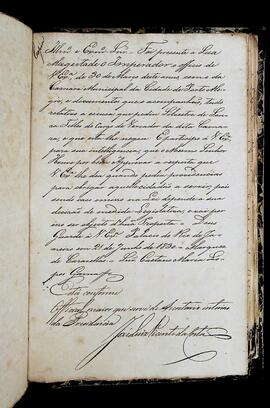 Illmo. e Exmo. Snr. = Foi presente a Sua
Magestade o Imperador o officio de
V. Exa. de 30 de Março deste anno, com o da
Camara Municipal da Cidade de Porto Ale-
gre, e documentos que o acompanhão, tudo
relativo a escusa que pedio Silvestre de Sou-
za Telles do cargo de Vereador da dita Cama-
ra, e que esta lhe negou. E participo a V. Exa.
para sua intelligencia, que o Mesmo Senhor
Houve por bem Approvar a resposta que
V. Exa. lhe deu quando pedio providencias
para obrigar aquelle cidadão a servir, pois
sendo caso omisso na Lei depende a sua
decisão de medida Legislativa, o que por
isso ser objecto d'huma Proposta = Deos
Guarde a V. Exa. Palacio do Rio de Ja-
neiro em 21 de Junho de 1830 = Marquez
de Caravellas = Snr. Caetano Maria Lo-
pes Gama
Está conforme
O Official maior que serve de Secretario interino
da Presidencia